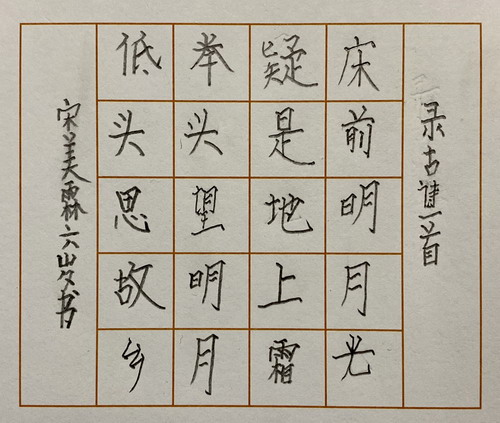 录古诗一首
床前明月光
疑是地上霜
举头望明月
低头思故乡
宋美霖六岁书